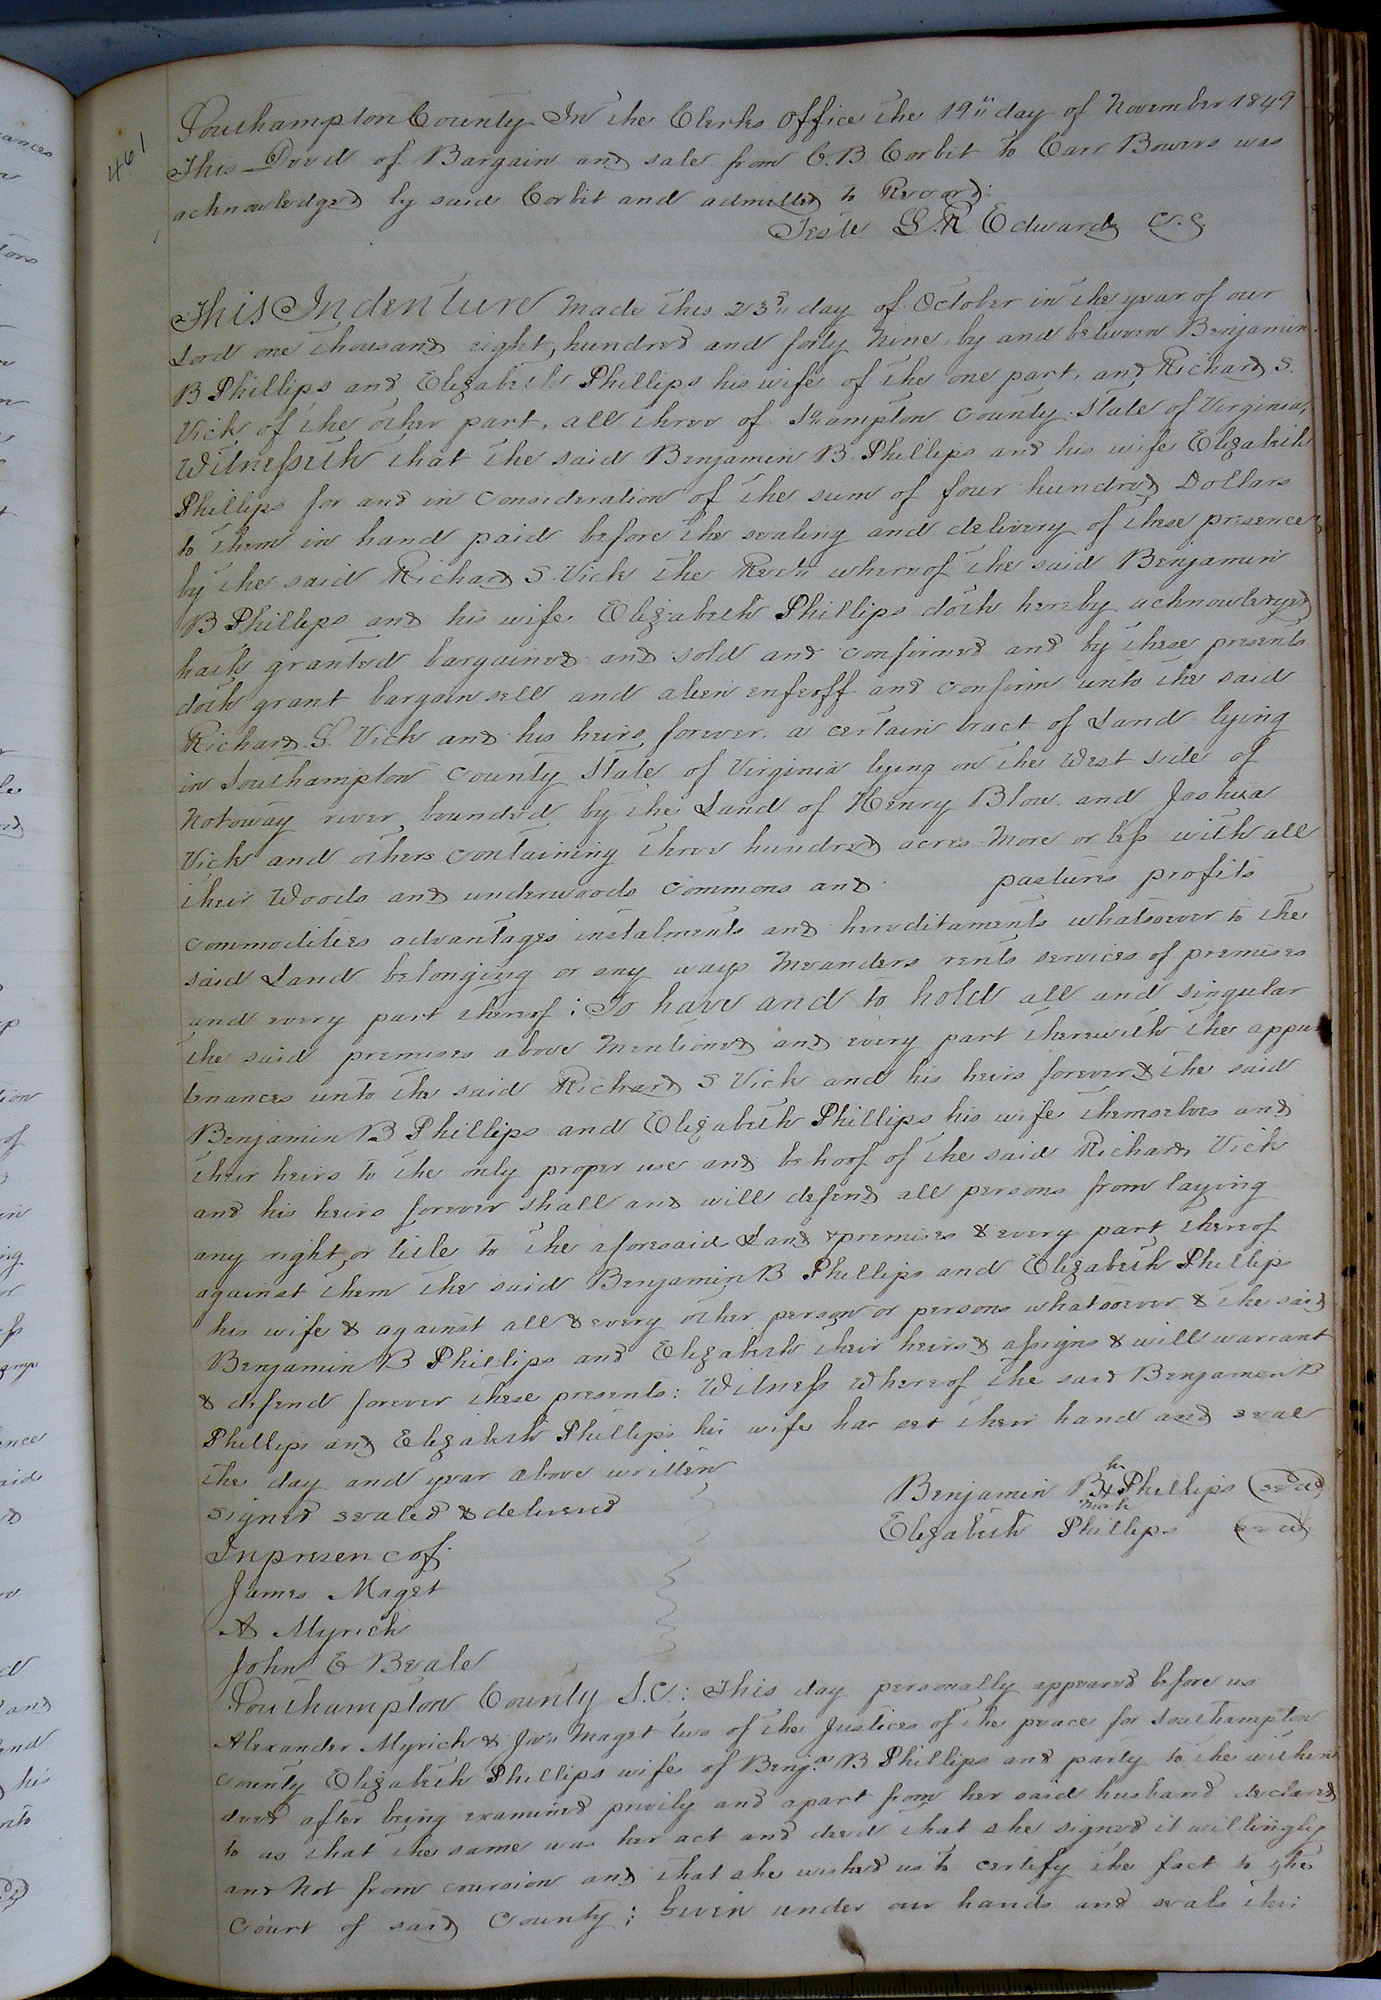 461
Southampton County In the Clerks Office the 19" day of November 1849
This Deed of Bargain and sale from C. B Corbit to Carr Bowers was
acknowledged by said Corbit and admitted to Record:
Teste L. R Edwards C.C
This Indenture Made this 23d" day of October in the year of our
Lord one thousand eight, hundred and forty Nine, by and between Benjamin
B Phillips and Elizabeth Phillips his wife of the one part, and Richard S.
Vick of the other part, all three of So"ampton County State of Virginia,
Witnesseth that the said Benjamin B. Phillips and his wife Elizabeth
Phillips for and in consideration of the sum of four hundred Dollars
to them in hand paid before the sealing and delivery of these presence
by the said Richard S. Vick the Rect" whereof the said Benjamin
B Phillips and his wife Elizabeth Phillips doth hereby acknowledged
hath granted bargained and sold and confirmed and by these presents
doth grant bargain sell and alien enfeoff and confirm unto the said
Richard S. Vick and his heirs forever. a certain tract of Land lying
in Southampton County State of Virginia lying on the West side of
Notoway river bounded by the Land of Henry Blow. and Joshua
Vick and others containing three hundred acres More or less with all
their Woods and underwoods commons and pastures profits
commodities advantages instalments and hereditaments whatsoever to the
said Land belonging or any ways Meanders rents services of premises
and every part thereof; To have and to hold all and singular
the said premises above Mentioned and every part therewith the appur
tenances unto the said Richard S Vick and his heirs forever & the said
Benjamin B Phillips and Elizabeth Phillips his wife themselves and
their heirs to the only proper use and behoof of the said Richard Vick
and his heirs forever shall and will defend all persons from laying
any right, or title to the aforesaid Land & premises & every part thereof
against them the said Benjamin B Phillips and Elizabeth Phillips
his wife & against all & every other person or persons whatsoever & the said
Benjamin B Phillips and Elizabeth their heirs & assigns & will warrant
& defend forever these presents: Witness Whereof the said Benjamen B
Phillips and Elizabeth Phillips his wife has set their hand and seal
the day and year above written
Signed sealed & delivered
his
Benjamin B X Phillips (seal)
mark
Elizabeth Phillips (seal)
In presence of:
James Maget
A Myrick
John E Beale
Southampton County S.C: This day personally appeared before us
Alexander Myrick & Jas" Maget two of the Justices of the peace for Southampton
County Elizabeth Phillips wife of Benja. B Phillips and party to the within
deed after being examined privily and apart from her said husband declared
to us that the same was her act and deed that she signed it willingly
and Not from coursion and that she wished us to certify the fact to the
Court of said County; Given under our hands and seals this